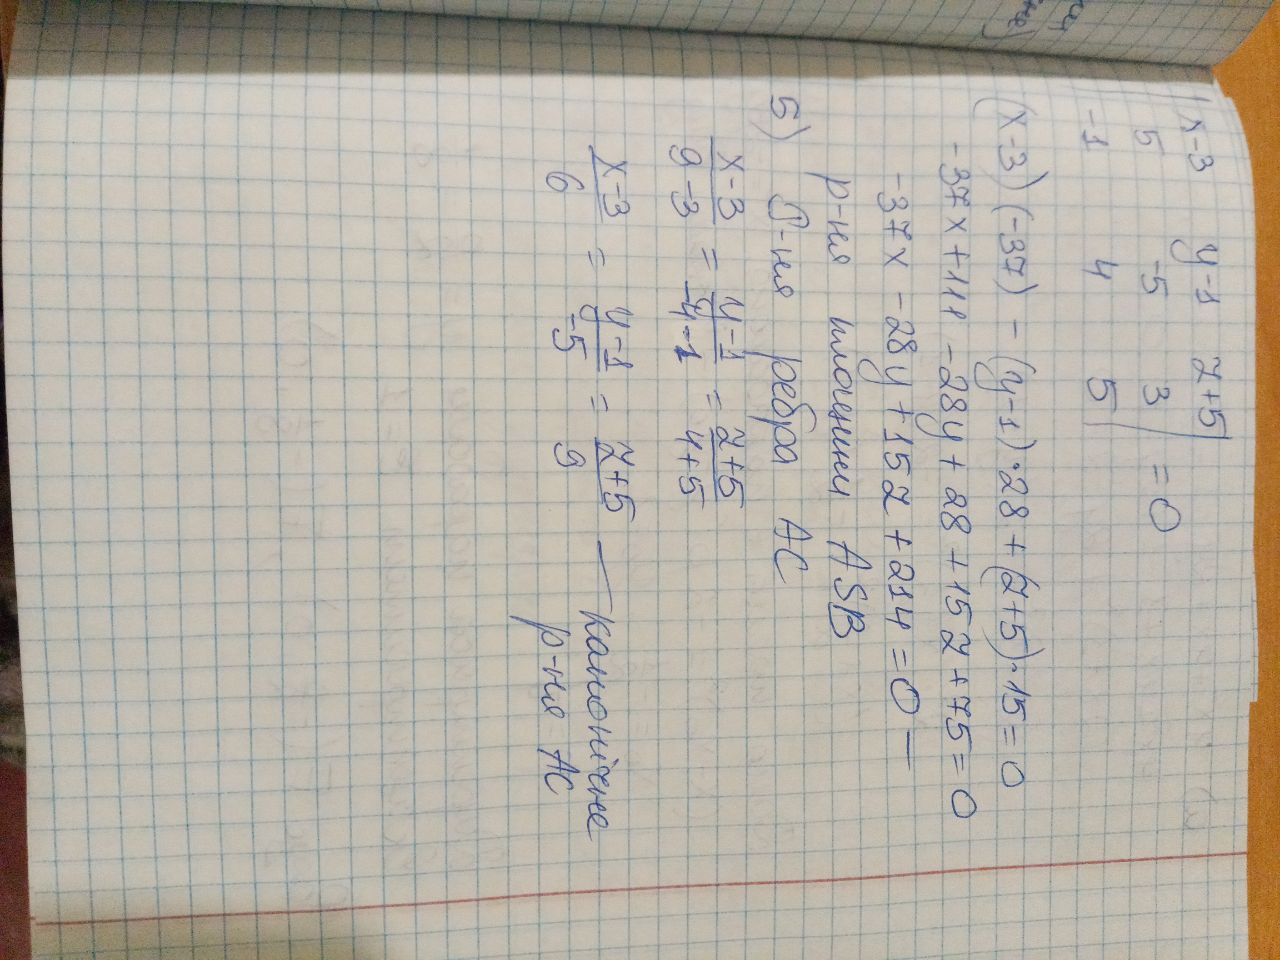 | x-3 y-1 z+5 |
| 5 -5 3 | = 0
| -1 4 5 |
(x-3)(-37) - (y-1)·28 + (z+5)·15 = 0
-37x+111 -28y+28+15z+75=0
-37x -28y+15z+214=0 —
р-ня площини ASB
5) Р-ня ребра AC
(x-3)/(9-3) = (y-1)/(-4-1) = (z+5)/(4+5)
(x-3)/6 = (y-1)/(-5) = (z+5)/9 — канонічне
р-ня AC